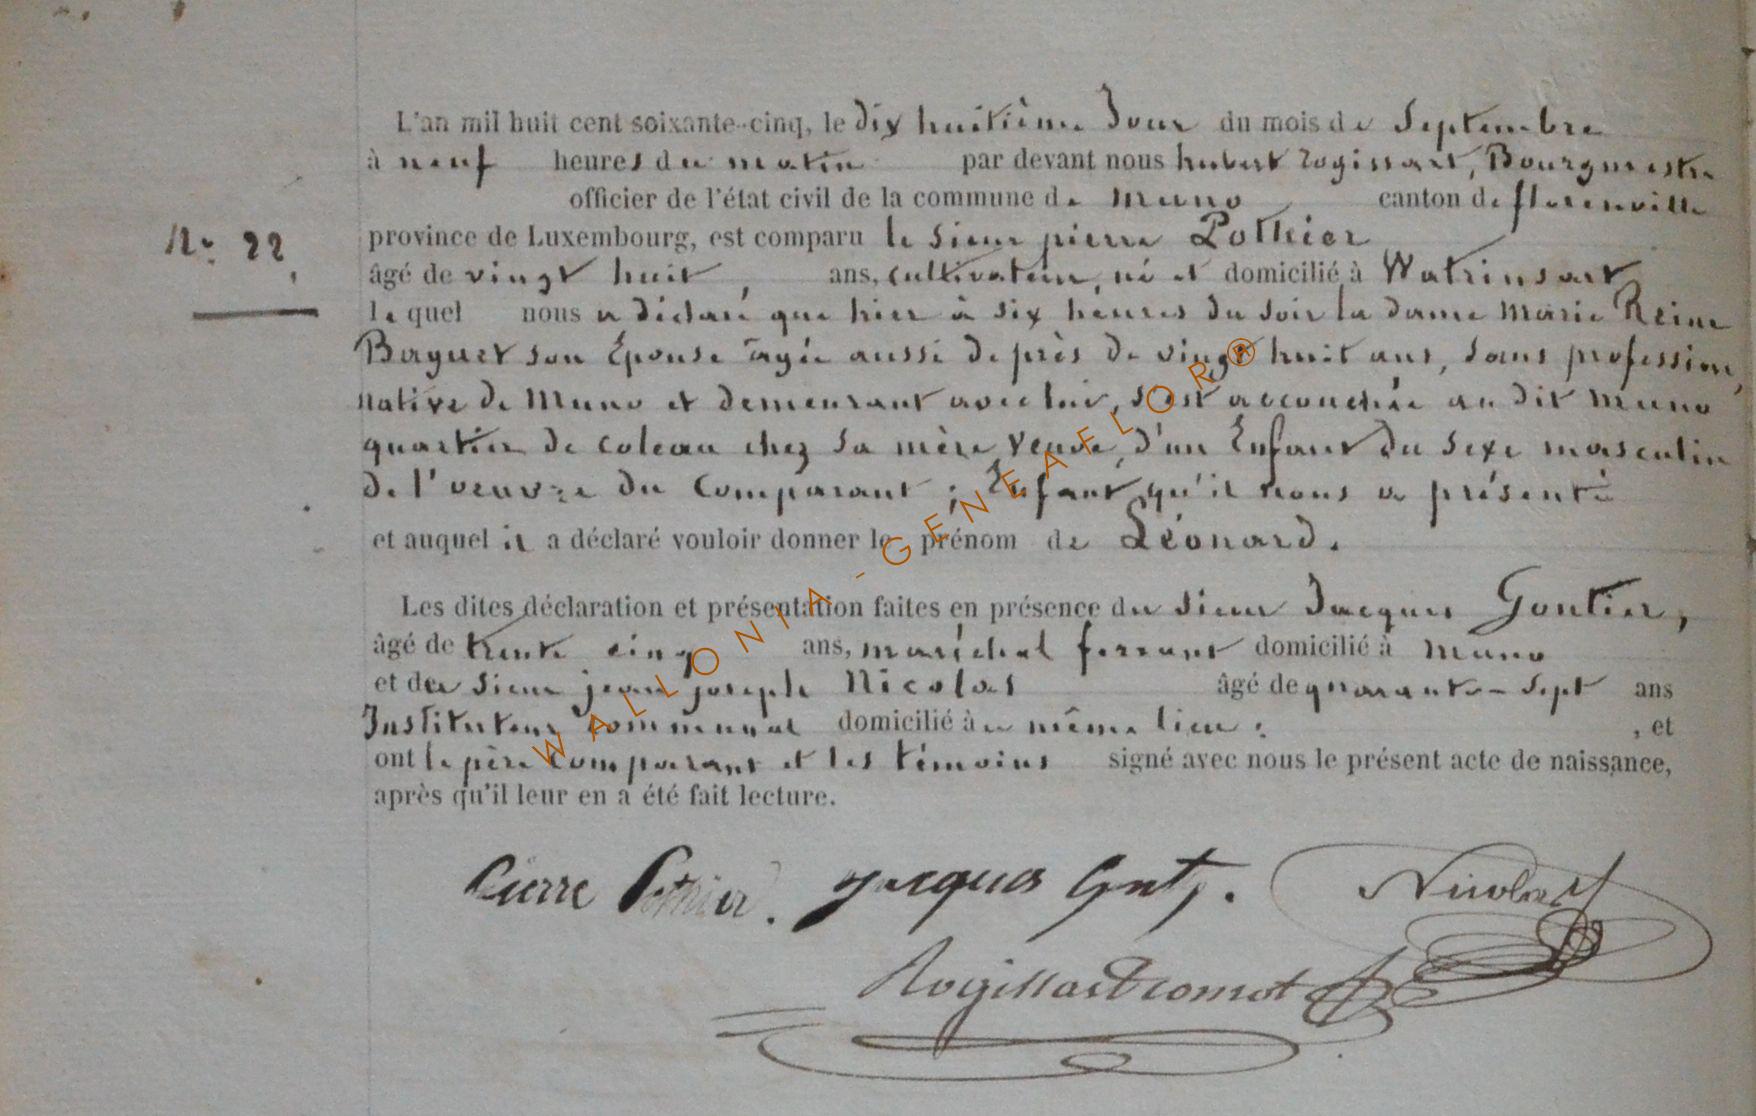 L'an mil huit cent soixante-cinq, le dix huitième Jour du mois de Septembre
à neuf heures du matin par devant nous hubert Rogissart, Bourgmestre
officier de l'état civil de la commune de Muno canton de florenville
N° 22,
province de Luxembourg, est comparu le sieur pierre Pothier
âgé de vingt huit, ans, cultivateur, né et domicilié à Watrinsart
le quel nous a déclaré que hier à six heures du soir la dame Marie Reine
Baguet son Epouse agée aussi de près de vingt huit ans, sans profession,
native de Muno et demeurant avec lui, s'est accouchée au dit Muno
quartier de coleau chez sa mère veuve, d'un Enfant du sexe masculin
de l'oeuvre du Comparant ; Enfant qu'il nous a présenté
et auquel il a déclaré vouloir donner le prénom de Léonard.
Les dites déclaration et présentation faites en présence du sieur Jacques Gontier,
âgé de trente cinq ans, maréchal ferrant domicilié à Muno
et du sieur jean joseph Nicolas âgé de quarante-sept ans
Instituteur communal domicilié à même lieu , et
ont le père comparant et les témoins signé avec nous le présent acte de naissance,
après qu'il leur en a été fait lecture.
Pierre Pothier. Jacques Nicolas
Rogissart
WALLONIA-GENEAFLOR®